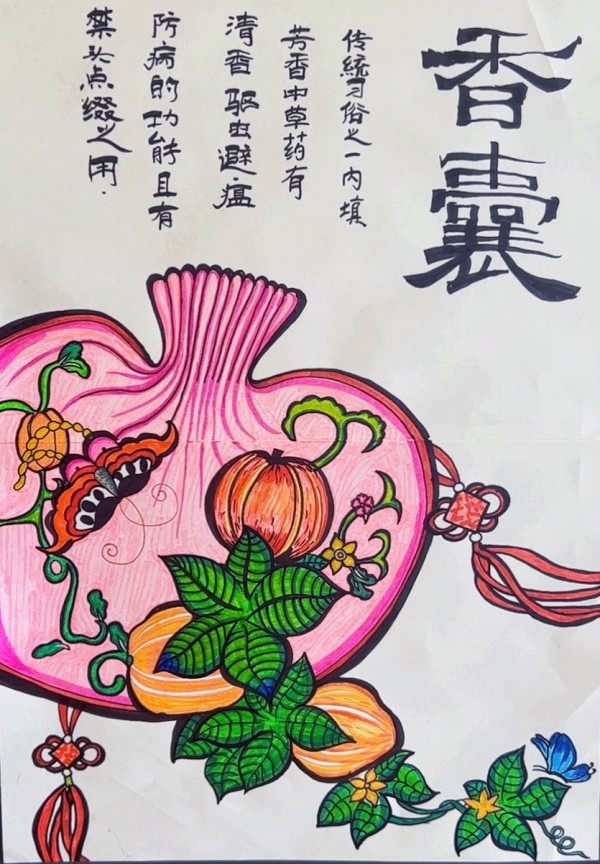 香囊
传統习俗之一内填
芳香中草药有
清香驱虫避瘟
防病的功能且有
禁头点缀之用.